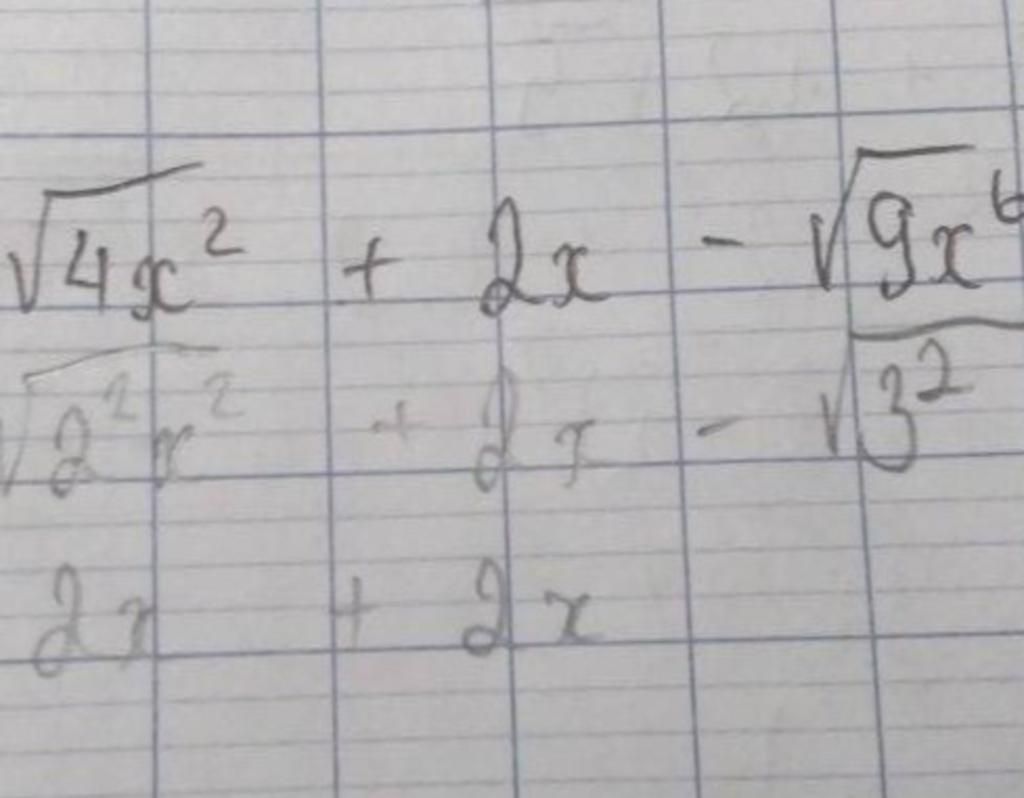 √4x² + 2x - √9x⁶
√2²x² + 2x - √3²
2x + 2x